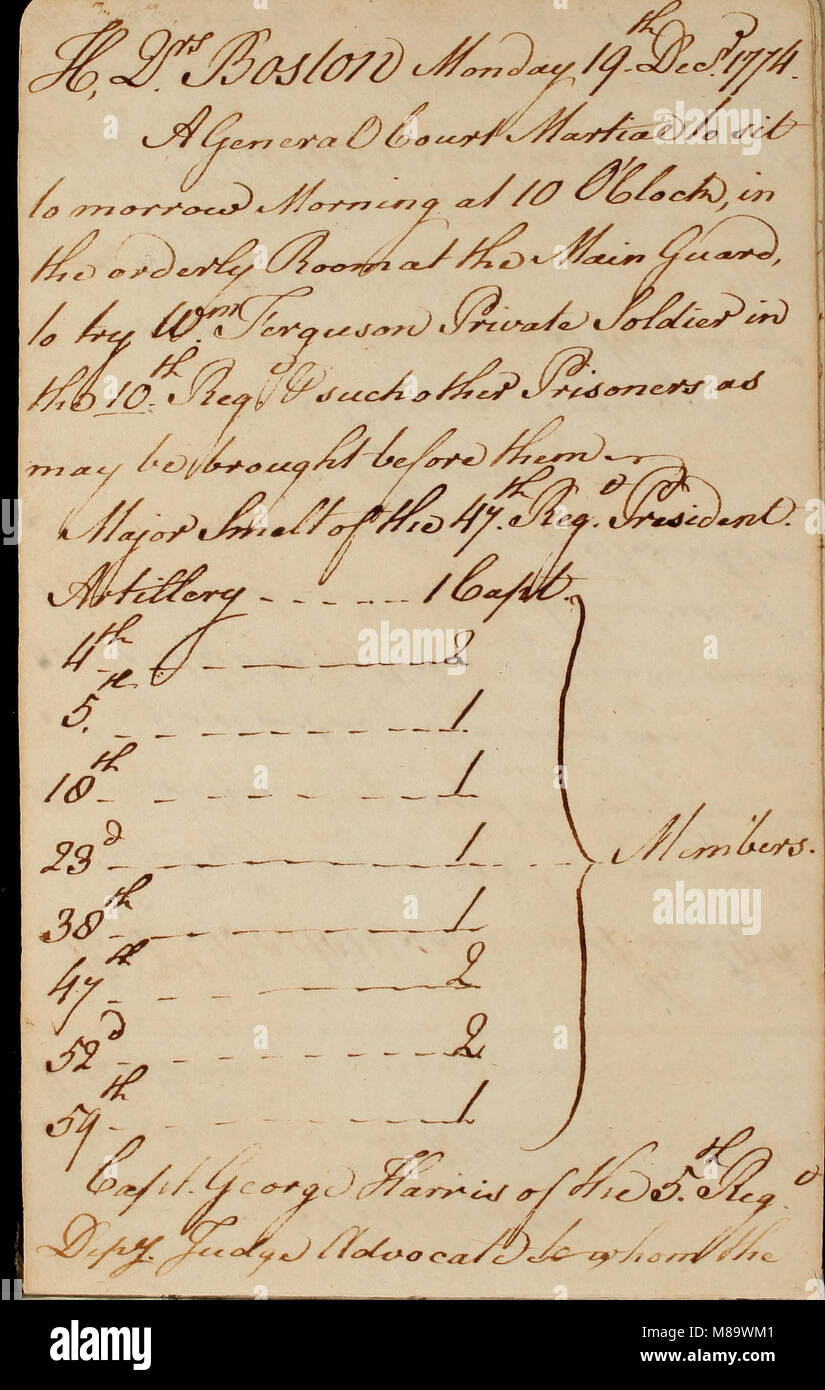 H, Qrs Boston Monday 19th Decr. 1774.
A General Court Martial to sit
to morrow Morning at 10 O'Clock, in
the orderly Room at the Main Guard,
to try Wm. Ferguson Private Soldier in
the 10th Regd. & such other Prisoners as
may be brought before them
Major Smelt of the 47th Regd. President.
Artillery - - - - - 1 Capt.
4th - - - - - 2
5th - - - - - 1
18th - - - - - 1
23d - - - - - 1 - - - - Members.
38th - - - - - 1
47th - - - - - 2
52d - - - - - 2
59th - - - - - 1
Capt. George Harris of the 5th Regd
Depy. Judge Advocate to whom the
alamy
M89WM1
www.alamy.com